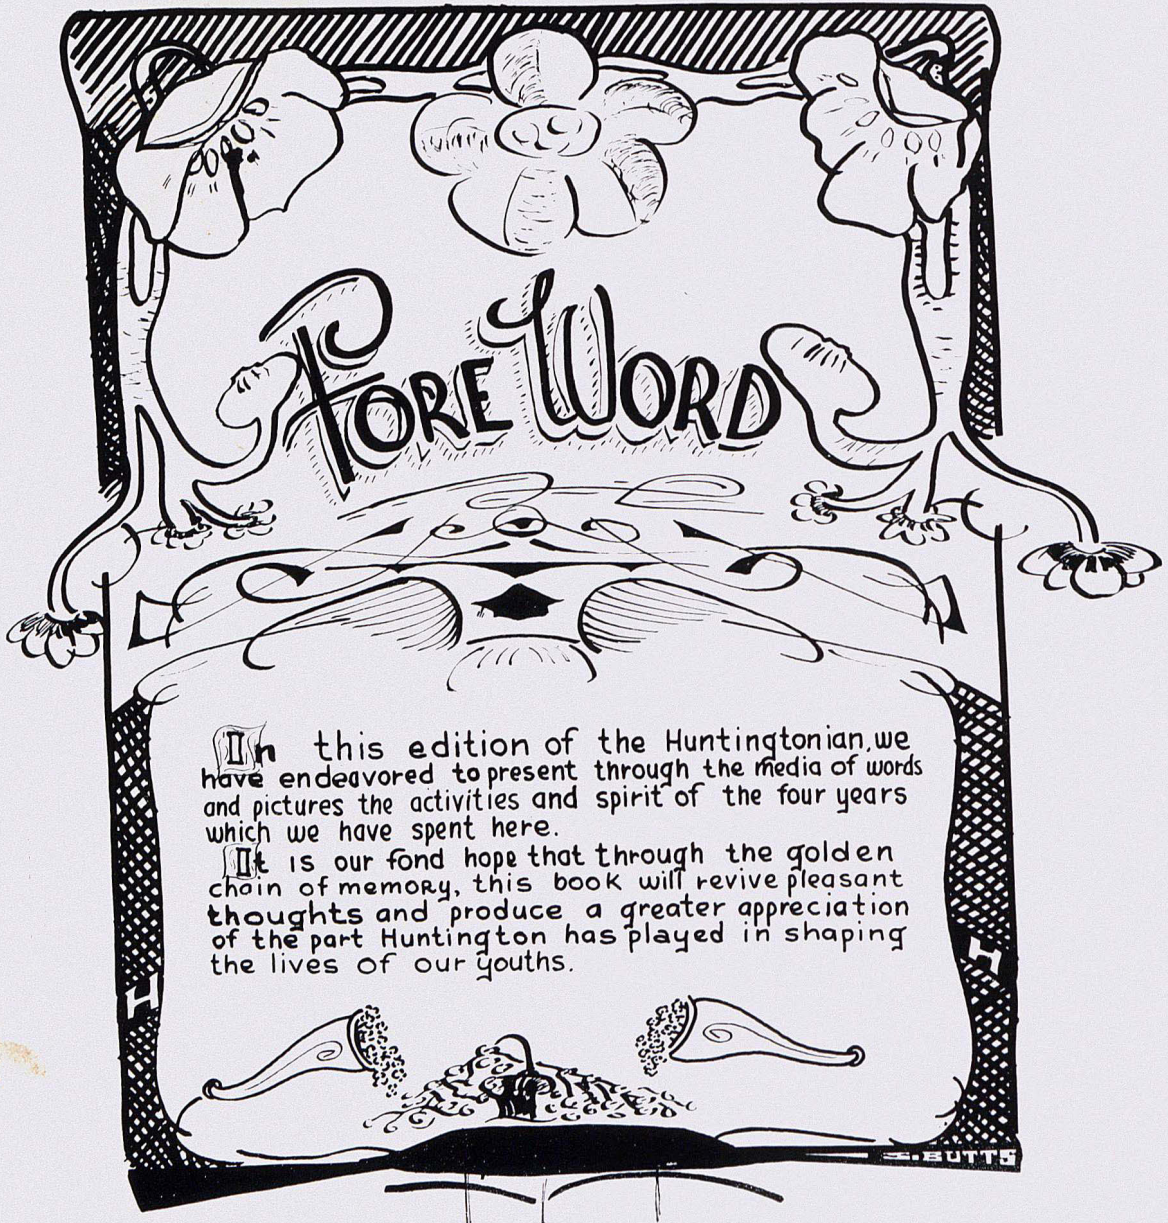 Fore Word
In this edition of the Huntingtonian, we
have endeavored to present through the media of words
and pictures the activities and spirit of the four years
which we have spent here.
It is our fond hope that through the golden
chain of memory, this book will revive pleasant
thoughts and produce a greater appreciation
of the part Huntington has played in shaping
the lives of our youths.
H
H
I. BUTTS